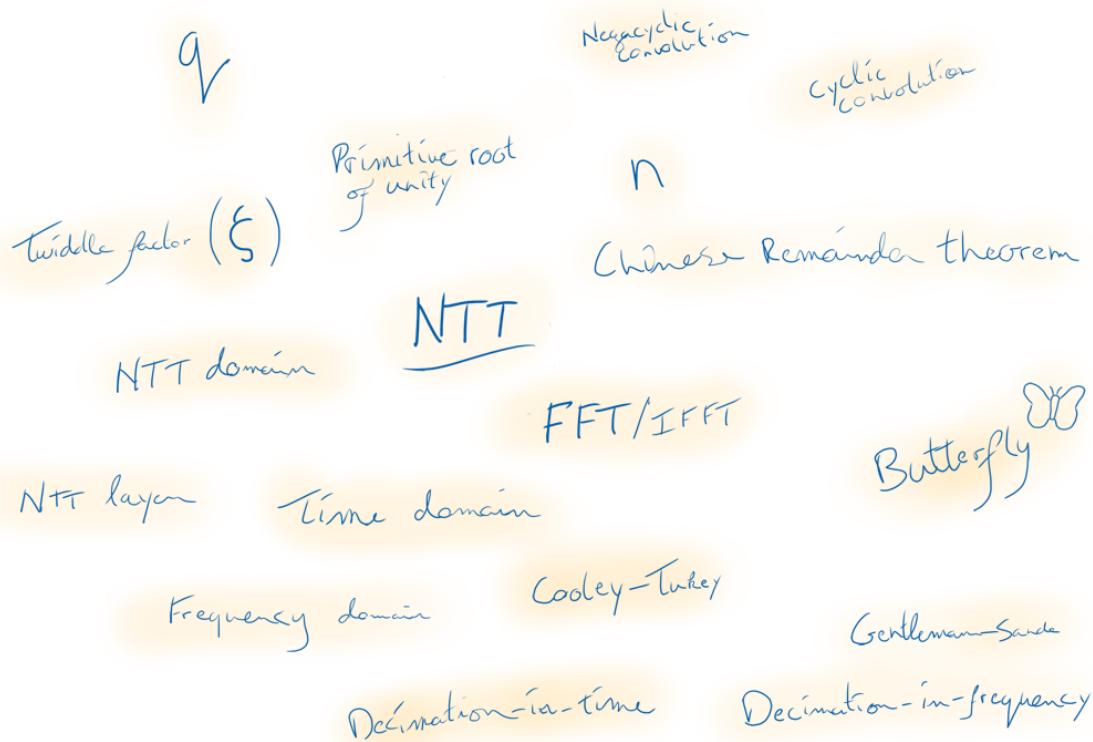 q
Negacyclic
convolution
Cyclic
convolution
Primitive root
of unity
n
Twiddle factor (ξ)
Chinese Remainda theorem
NTT
NTT domain
FFT/IFFT
Butterfly
NTT layer
Time domain
Cooley-Tukey
Frequency domain
Gentlemann-Sande
Decimation-in-time
Decimation-in-frequency